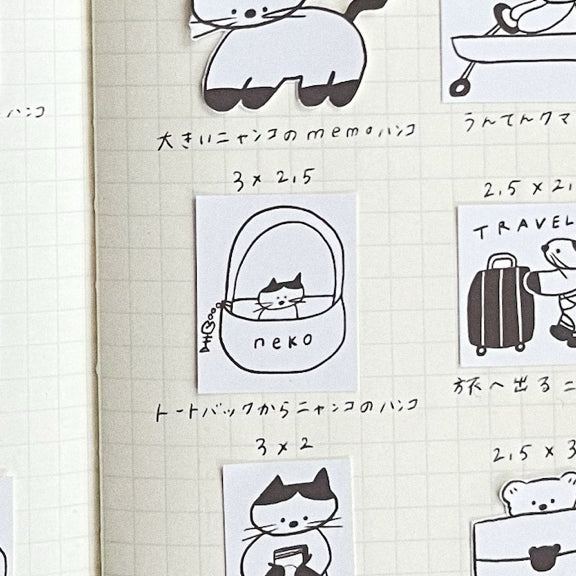 ハンコ
大きいニャンコのmemoハンコ
うんてんクマ
3 × 2,5
2,5 × 2,
TRAVEL
neko
トートバックからニャンコのハンコ
旅へ出るニ
3 × 2
2,5 × 3